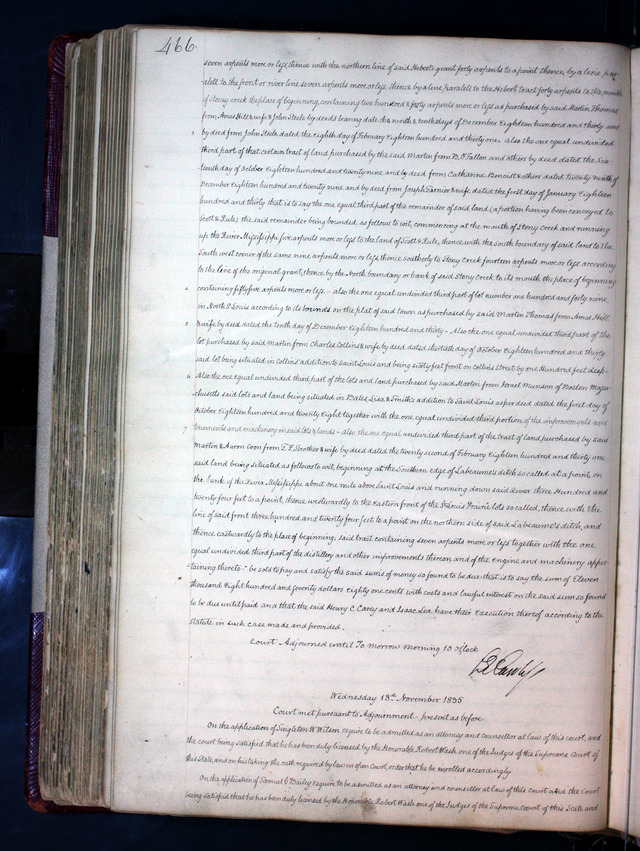 466
seven arpents more or less, thence with the northern line of said Hebert's grant forty arpents to a point thence, by a line par-
alell to the front or river line seven arpents more or less, thence by a line paralell to the Hebert tract forty arpents to the mouth
of Stony creek the place of beginning, containing two hundred & forty arpents more or less as purchased by said Martin Thomas
from Amos Hill & wife & John Steele by deeds bearing date the ninth & tenth days of December Eighteen hundred and thirty and
3. by deed from John Steele dated the eighth day of February Eighteen hundred and thirty one. also the one equal undivided
third part of that certain tract of land purchased by the said Martin from B. Fallen and other by deed dated the Six-
teenth day of October Eighteen hundred and twenty nine and by deed from Catharine Benoist & others dated twenty ninth of
December Eighteen hundred and twenty nine and by deed from Joseph Farnier & wife dated the first day of January Eighteen
hundred and thirty that is to say the one equal third part of the remainder of said land (a portion having been conveyed to
Scott & Rule) the said remainder being bounded as follows to wit, commencing at the mouth of Stony Creek and running
up the River Mississippi five arpents more or less to the land of Scott & Rule, thence with the south boundary of said land to the
South west corner of the same nine arpents more or less, thence southerly to Stony Creek fourteen arpents more or less according
to the line of the original grant, thence by the North boundary or bank of said Stony Creek to its mouth the place of beginning
4. containing fifty five arpents more or less – also the one equal undivided third part of lot number one hundred and forty nine
in North St Louis according to its bounds on the plat of said town as purchased by said Martin Thomas from Amos Hill
5. & wife by deed dated the tenth day of December Eighteen hundred and thirty – Also the one equal undivided third part of the
lot purchased by said Martin from Charles Collins & wife by deed dated the sixth day of October Eighteen hundred and thirty
said lot being situated in Collins' addition to Saint Louis and being sixty feet front on Collins Street by One Hundred feet deep –
6. Also the one equal undivided third part of the lots and land purchased by said Martin from Israel Munson of Boston Massa-
chusetts said lots and land being situated in Bates, Lisa & Smith's addition to Saint Louis as per deed dated the first day of
October Eighteen hundred and twenty eight together with the one equal undivided third portion of the improvements and
7. tenements and machinery in said lots & lands – also the one equal undivided third part of the tract of land purchased by said
Martin & Aaron Coon from T. F. Strother & wife by deed dated the twenty second of February Eighteen hundred and thirty one
said land being situated as follows to wit, beginning at the Southern edge of Labeaume's ditch so called at a point on
the bank of the River Mississippi about one mile above Saint Louis and running down said River three Hundred and
twenty four feet to a point, thence westwardly to the Eastern front of the St Louis Prairie lots so called, thence with the
line of said front three hundred and twenty four feet to a point on the northern side of said Labeaume's ditch, and
thence eastwardly to the place of beginning; said tract containing seven arpents more or less together with the one
equal undivided third part of the distillery and other improvements thereon and of the engine and machinery apper-
taining thereto – be sold to pay and satisfy the said sums of money so found to be due: that is to say the sum of Eleven
thousand Eight hundred and seventy dollars eighty one cents with costs and lawful interest on the said sum so found
to be due until paid and that the said Henry C. Carey and Isaac Lea, have their Execution thereof according to the
statute in such case made and provided.
Court Adjourned until To Morrow morning 10 o'clock
Wednesday 18th November 1835
Court met pursuant to Adjournment – present as before
On the application of Singleton W Wilson esquire to be admitted as an attorney and counsellor at law of this court, and
the court being satisfied that he has been duly licensed by the Honorable Robert Wash one of the Judges of the Supreme Court of
this State, and on his taking the oath required by law in open Court, order that he be enrolled accordingly.
On the application of Samuel G Bailey esquire to be admitted as an attorney and counsellor at law of this court and the Court
being satisfied that he has been duly licensed by the Honorable Robert Wash one of the Judges of the Supreme Court of this State and